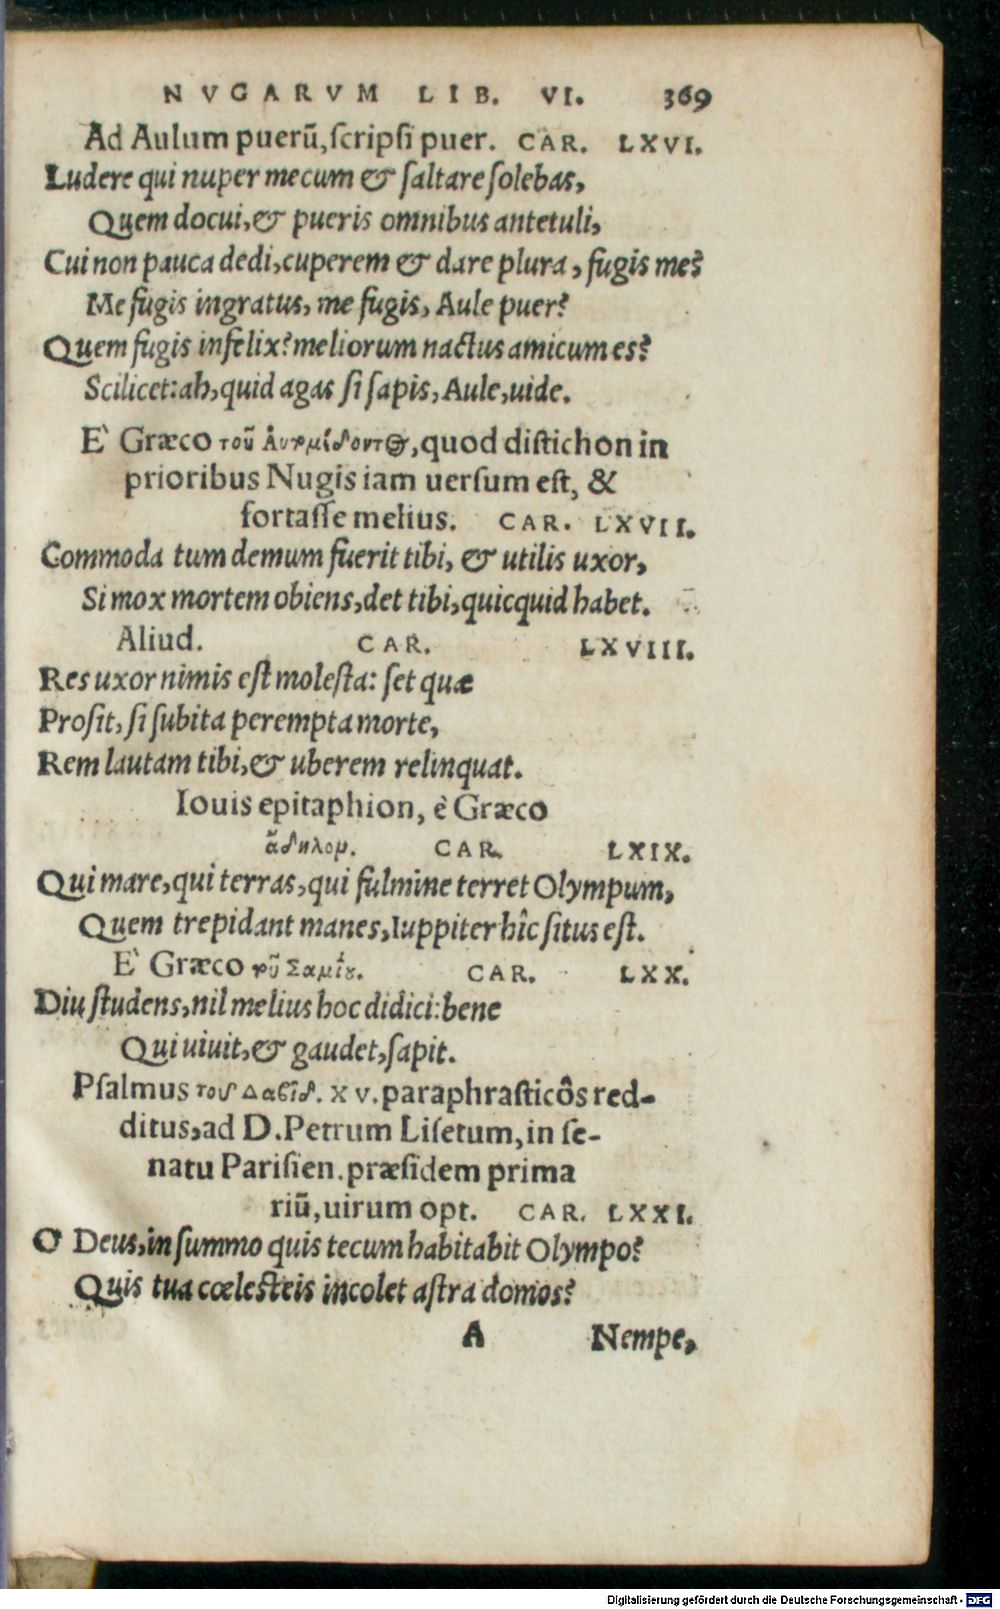 NVGARVM LIB. VI. 369
Ad Aulum puerũ, ſcripſi puer. CAR. LXVI.
Ludere qui nuper mecum & ſaltare ſolebas,
Quem docui, & pueris omnibus antetuli,
Cui non pauca dedi, cuperem & dare plura, fugis me?
Me fugis ingratus, me fugis, Aule puer?
Quem fugis infelix? meliorum nactus amicum es?
Scilicet: ah, quid agas ſi ſapis, Aule, uide.
E` Græco τοῦ, quod diſtichon in
prioribus Nugis iam uerſum eſt, &
fortaſſe melius. CAR. LXVII.
Commoda tum demum fuerit tibi, & utilis uxor,
Si mox mortem obiens, det tibi, quicquid habet.
Aliud. CAR. LXVIII.
Res uxor nimis eſt moleſta: ſet quæ
Proſit, ſi ſubita perempta morte,
Rem lautam tibi, & uberem relinquat.
Iouis epitaphion, è Græco
ἄδηλομ. CAR. LXIX.
Qui mare, qui terras, qui fulmine terret Olympum,
Quem trepidant manes, Iuppiter hîc ſitus eſt.
E` Græco τοῦ Σαμίου. CAR. LXX.
Diu ſtudens, nil melius hoc didici: bene
Qui uiuit, & gaudet, ſapit.
Pſalmus τοῦ Δαβὶδ. XV. paraphraſticôs red-
ditus, ad D. Petrum Liſetum, in ſe-
natu Pariſien. præſidem prima
riũ, uirum opt. CAR. LXXI.
O Deus, in ſummo quis tecum habitabit Olympo?
Quis tua cœleſteis incolet aſtra domos?
A Nempe,
Digitalisierung gefördert durch die Deutsche Forschungsgemeinschaft - DFG